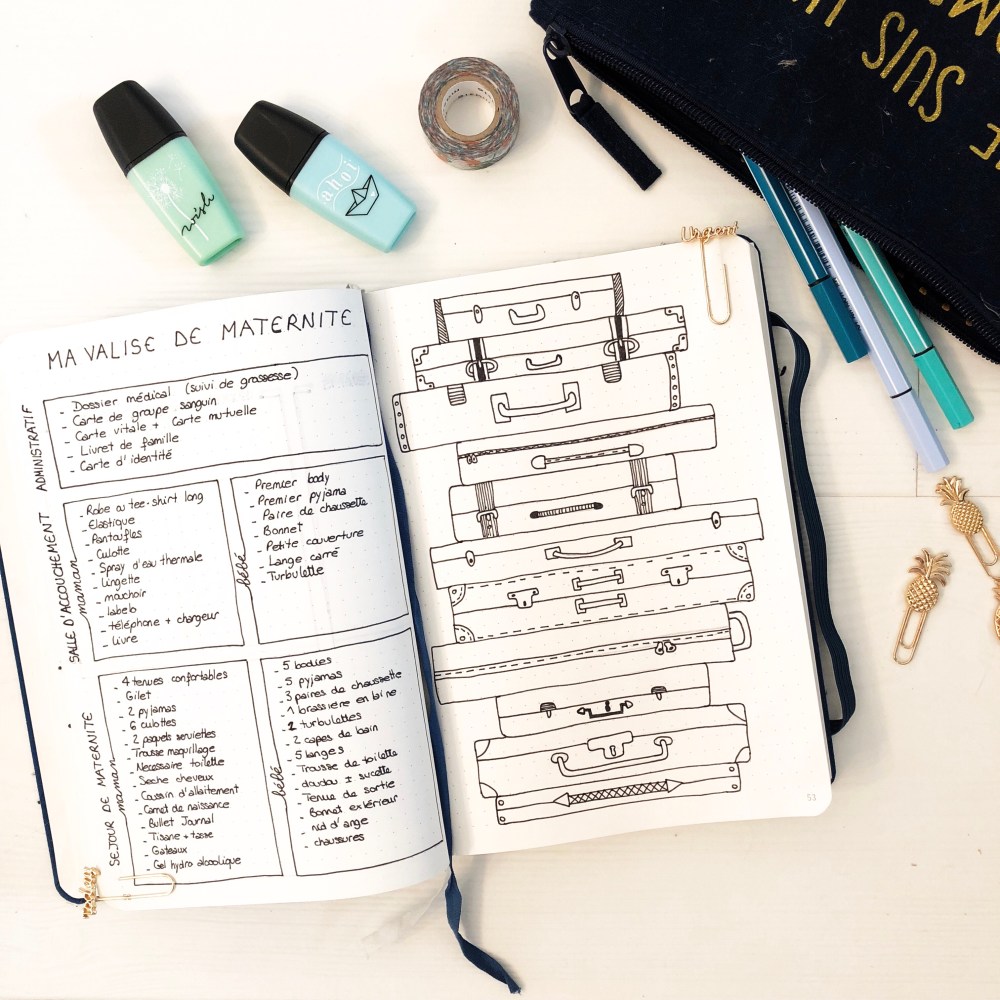 SUIS
wish
ahoi
Urgent
MA VALISE DE MATERNITE
ADMINISTRATIF
- Dossier médical (suivi de grossesse)
- Carte de groupe sanguin
- Carte vitale + Carte mutuelle
- Livret de famille
- Carte d'identité
SALLE D'ACCOUCHEMENT
maman
- Robe ou tee-shirt long
- Elastique
- Pantoufles
- Culotte
- Spray d'eau thermale
- Lingette
- mouchoir
- labelo
- téléphone + chargeur
- Livre
bébé
- Premier body
- Premier pyjama
- Paire de chaussette
- Bonnet
- Petite couverture
- Lange carré
- Turbulette
SEJOUR DE MATERNITE
maman
- 4 tenues confortables
- Gilet
- 2 pyjamas
- 6 culottes
- 2 paquets serviettes
- Trousse maquillage
- Necessaire toilette
- Seche cheveux
- Coussin d'allaitement
- Carnet de naissance
- Bullet Journal
- Tisane + tasse
- Gateaux
- Gel hydro alcoolique
bébé
- 5 bodies
- 5 pyjamas
- 3 paires de chaussette
- 1 brassière en laine
- 2 turbulettes
- 2 capes de bain
- 5 langes
- Trousse de toilette
- doudou ± sucette
- Tenue de sortie
- Bonnet extérieur
- nid d'ange
- chaussures
53